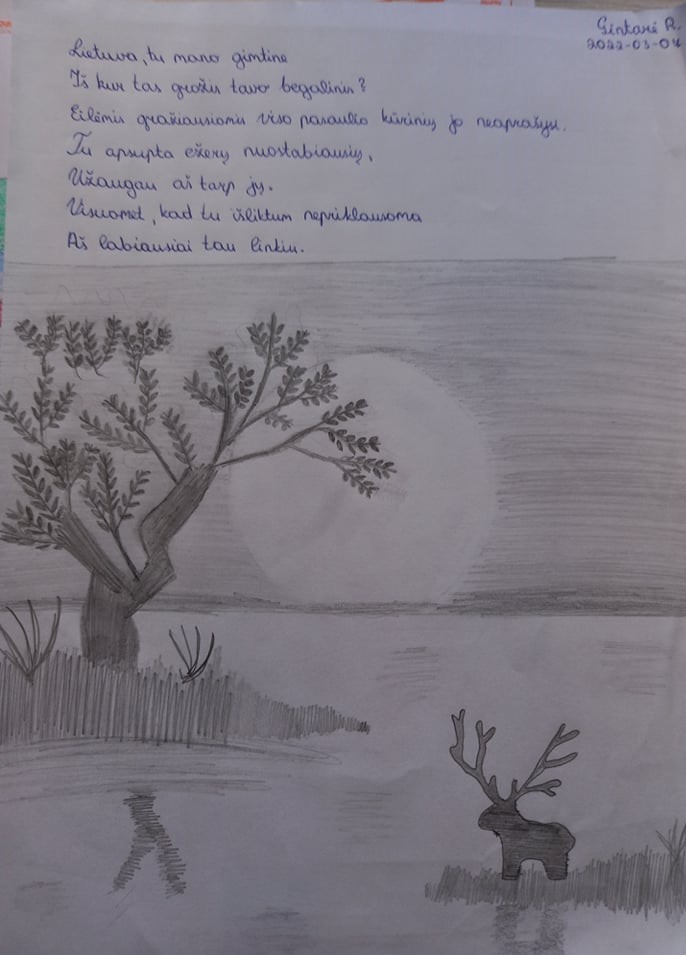 Gintarė R.
2022-03-04
Lietuva, tu mano gimtine
Iš kur tas grožis tavo begalinis?
Eilėmis gražiausiomis viso pasaulio kūrinių jo neaprašysi.
Tu apsupta ežerų nuostabiausių,
Užaugau aš tarp jų.
Visuomet, kad tu išliktum nepriklausoma
Aš labiausiai tau linkiu.